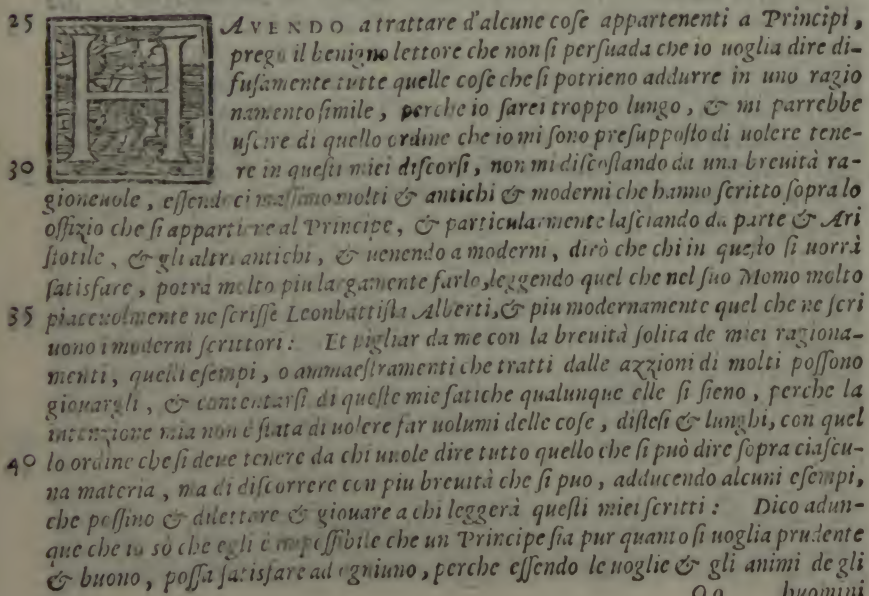 25 HAVENDO a trattare d'alcune coſe appartenenti a Principi,
prego il benigno lettore che non ſi perſuada che io uoglia dire di-
fuſamente tutte quelle coſe che ſi potrieno addurre in uno ragio
namento ſimile, perche io ſarei troppo lungo, & mi parrebbe
uſcire di quello ordine che io mi ſono preſuppoſto di uolere tene-
30 re in queſti miei diſcorſi, non mi diſcoſtando da una breuità ra-
gioneuole, eſſendoci maſſimo molti & antichi & moderni che hanno ſcritto ſopra lo
offizio che ſi appartiene al Principe, & particularmente laſciando da parte & Ari
ſtotile, & gli altri antichi, & uenendo a moderni, dirò che chi in queſto ſi uorrà
ſatisfare, potrà molto piu largamente farlo, leggendo quel che nel ſuo Momo molto
35 piaceuolmente ne ſcriſſe Leonbattiſta Alberti, & piu modernamente quel che ne ſcri
uono i moderni ſcrittori: Et pigliar da me con la breuità ſolita de miei ragiona-
menti, quelli eſempi, o ammaeſtramenti che tratti dalle azzioni di molti poſſono
giouargli, & contentarſi di queſte mie fatiche qualunque elle ſi ſieno, perche la
intenzione mia non è ſtata di uolere far uolumi delle coſe, diſteſi & lunghi, con quel
40 lo ordine che ſi deue tenere da chi uuole dire tutto quello che ſi può dire ſopra ciaſcu-
na materia, ma di diſcorrere con piu breuità che ſi puo, adducendo alcuni eſempi,
che poſſino & dilettare & giouare a chi leggerà queſti miei ſcritti: Dico adun-
que che io sò che egli è impoſſibile che un Principe ſia pur quanto ſi uoglia prudente
& buono, poſſa ſatisfare ad ogniuno, perche eſſendo le uoglie & gli animi de gli
Oo huomini